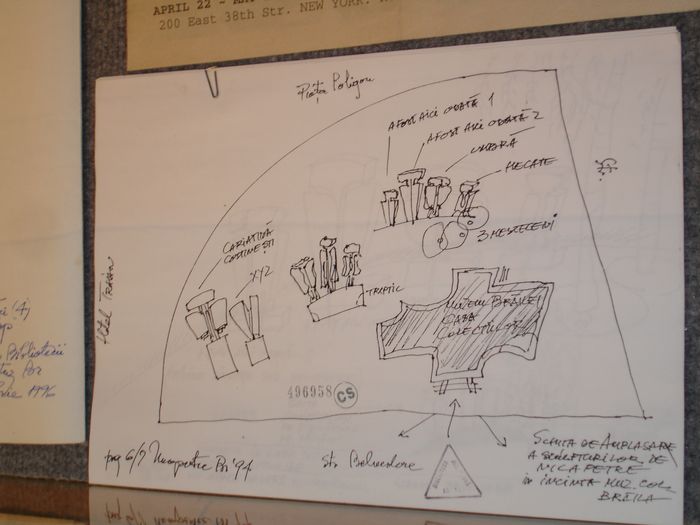 APRIL 22 -
200 East 38th Str. NEW YORK.
Piața Poligon
A FOST AICI ODATĂ 1
A FOST AICI ODATĂ 2
UMBRĂ
HECATE
3 MESTECENI
CARIATIDĂ
COSTINEȘTI
XYZ
TRIPTIC
MUZEUL BRĂILEI
BAZA
COLECȚIILOR
Hotel Traian
(4)
Bibliotecii
1996
496958 CS
pag 6/7 Pri '94
str. Belvedere
SCHIȚA DE AMPLASARE
A SCULPTURILOR DE
NICAPETRE
în INCINTA MUZ. COL
BRĂILA